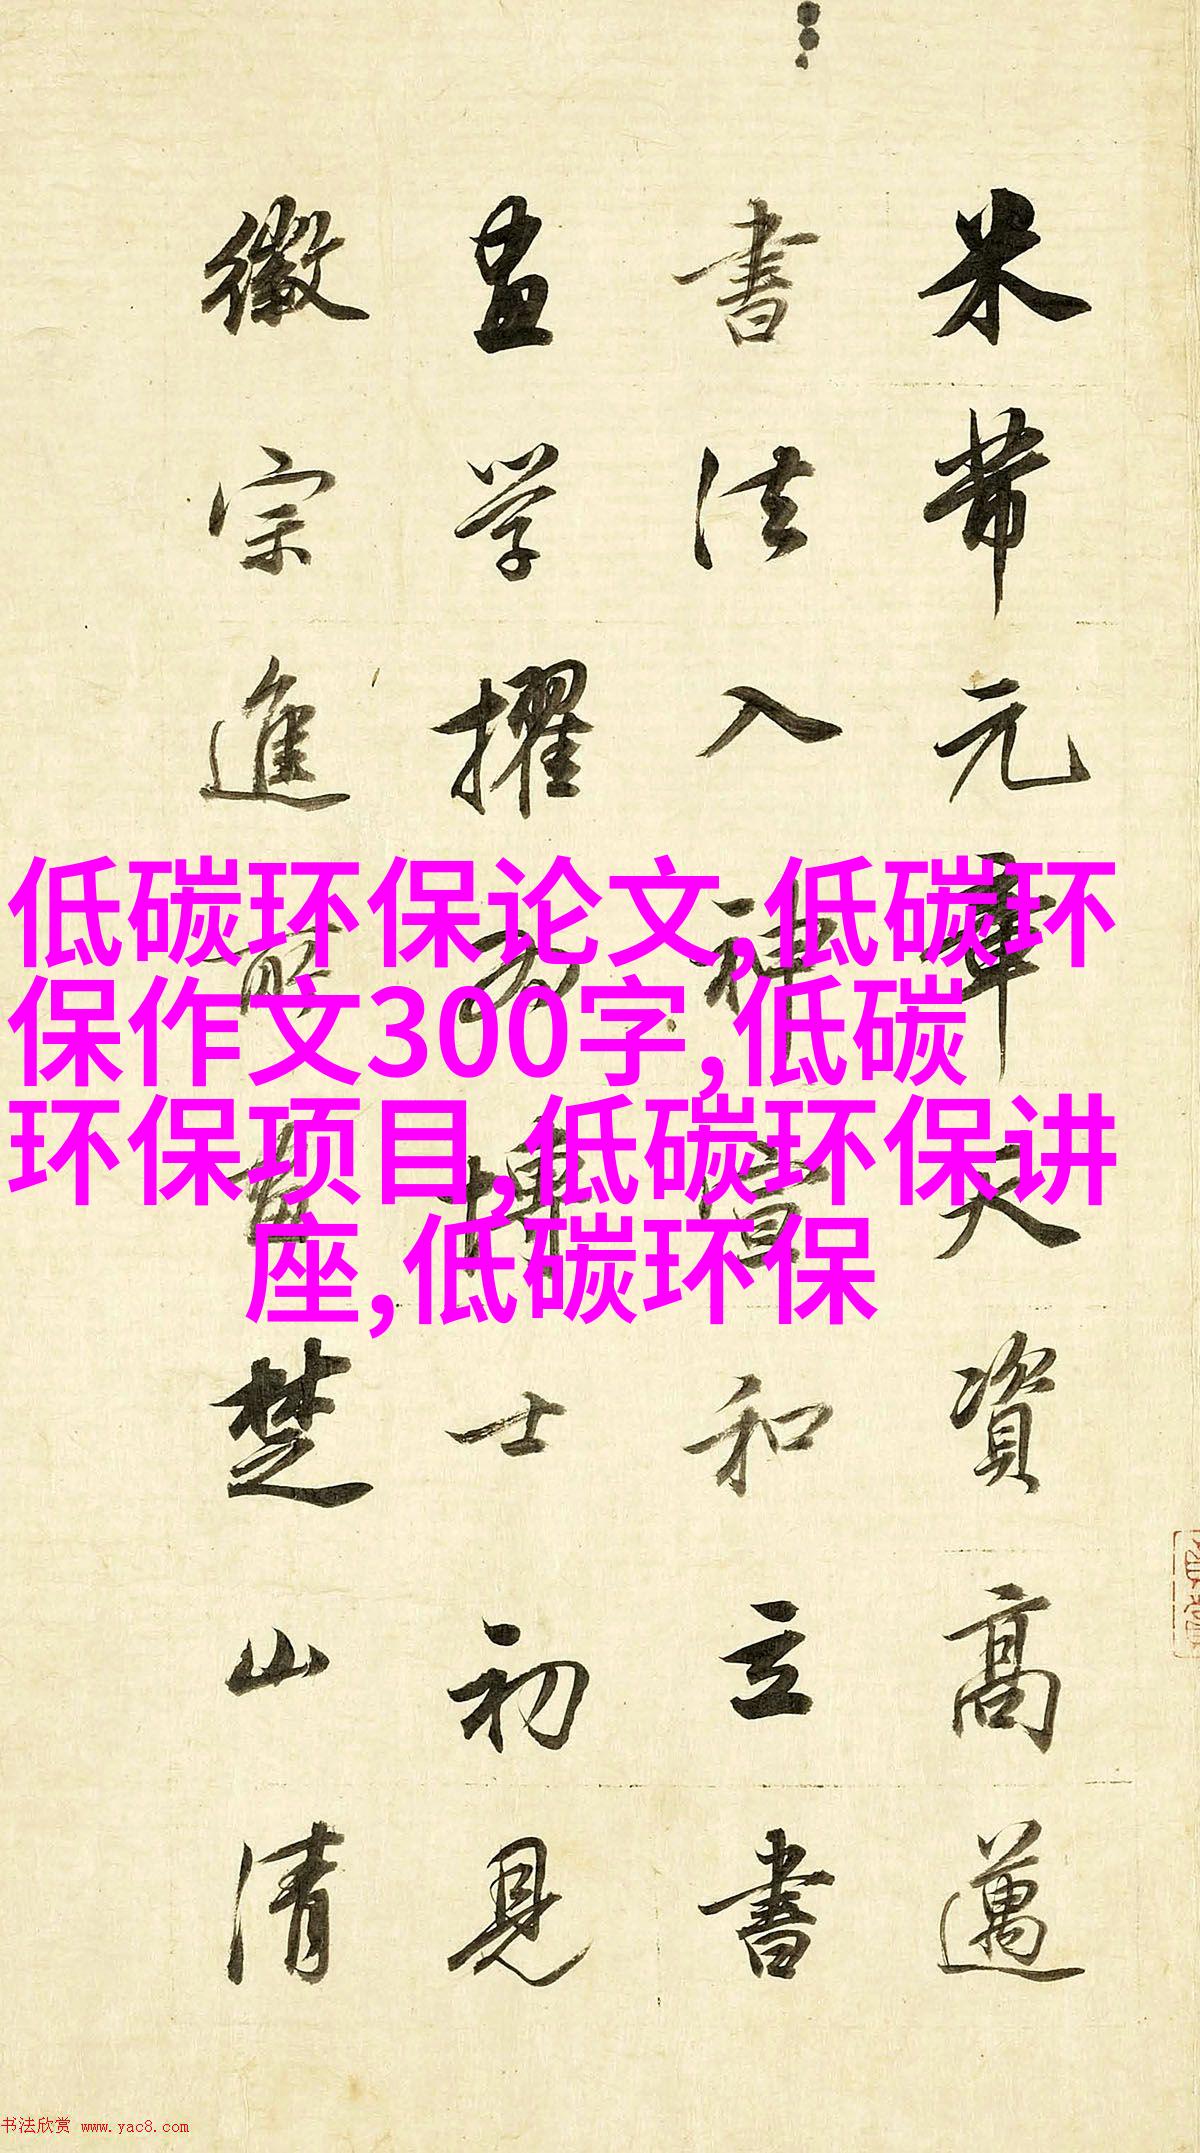 米芾元章天資高邁
書法入神宣和立書
畫学擢為博士初見
徽宗進所畫楚山清
低碳环保论文,低碳环
保作文300字,低碳
环保项目,低碳环保讲
座,低碳环保
书法欣赏 www.yac8.com